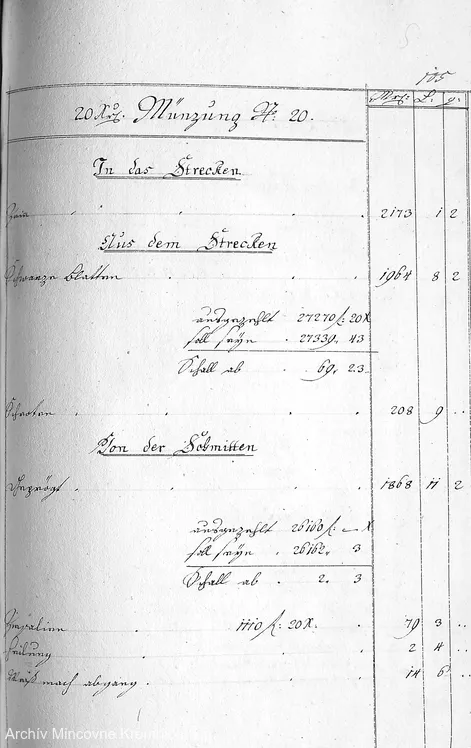 195
Mrk: L. q.
20 Xrs. Münzung N: 20.
In das Strecken
Zain 2173 1 2
Aus dem Strecken
Schwarze Blatten 1964 8 2
ausgezehlt 27270 f: 20 X
soll seyn 27339. 43
Schall ab 69. 23
Schroten 208 9 ..
Von der Schmitten
Geprägt 1868 11 2
ausgezehlt 26160 f: — X
soll seyn 26162. 3
Schall ab 2. 3
1110 f: 20 X. 79 3 ..
Feilung 2 4 ..
nach abgang 14 6 ..
Archív Mincovne Kremnica